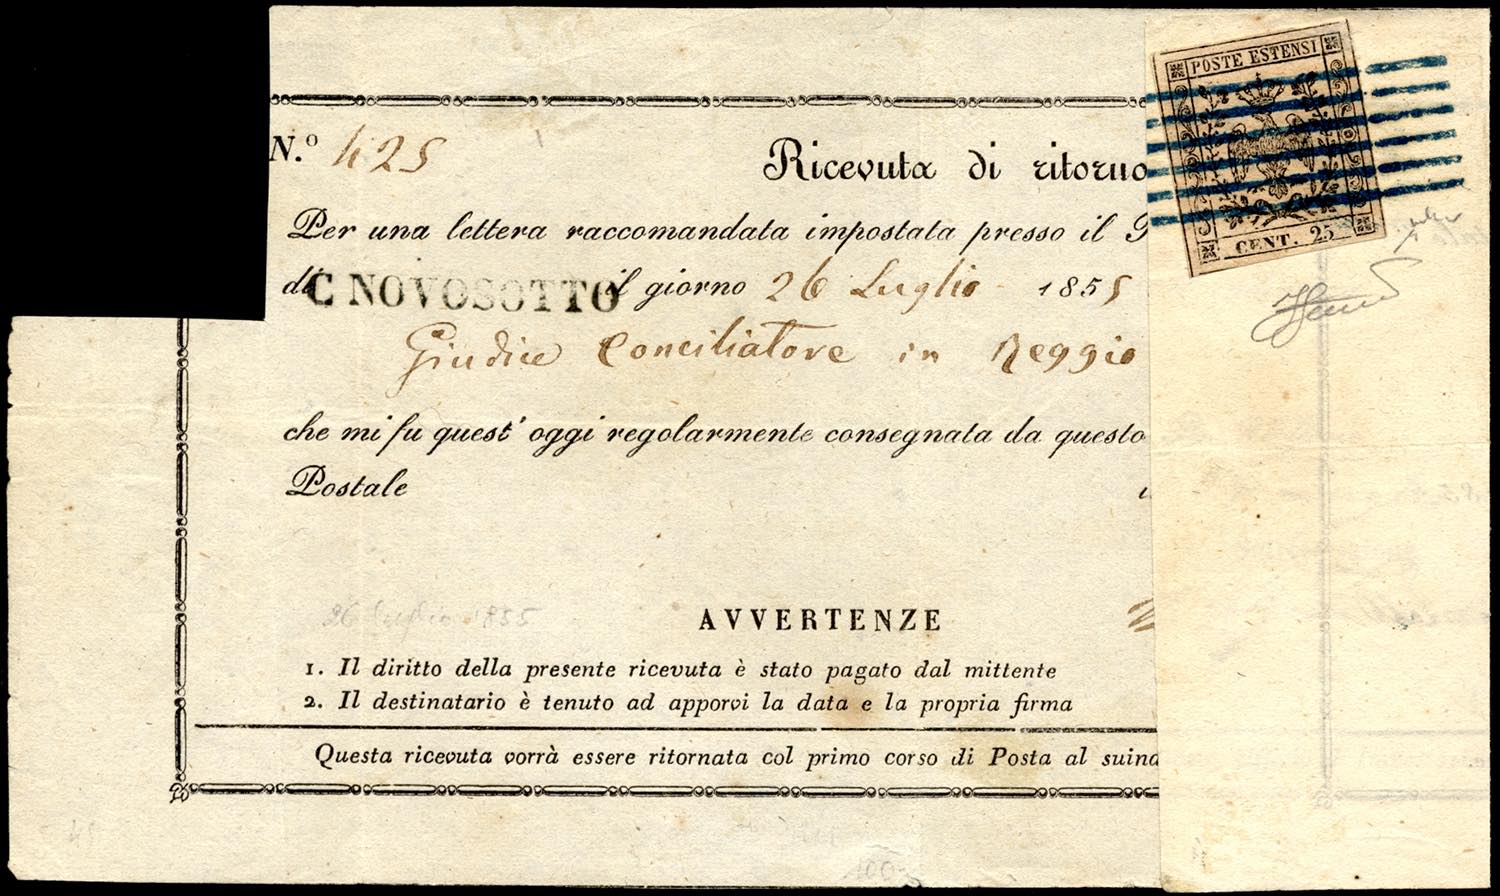 POSTE ESTENSI
CENT. 25
N.º 425
Ricevuta di ritorno
Per una lettera raccomandata impostata presso il
di C NOVOSOTTO il giorno 26 Luglio 1855
Giudice Conciliatore in Reggio
che mi fu quest' oggi regolarmente consegnata da questo
Postale
26 luglio 1855
AVVERTENZE
1. Il diritto della presente ricevuta è stato pagato dal mittente
2. Il destinatario è tenuto ad apporvi la data e la propria firma
Questa ricevuta vorrà essere ritornata col primo corso di Posta al suind
100